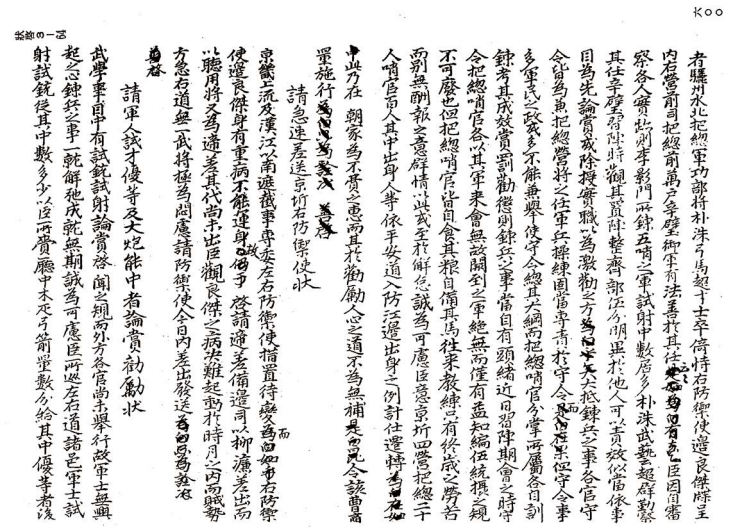 六〇〇
者驪州水北把摠軍功部將朴洙弓馬超士卒倚恃右防禦使邊良傑牒呈
內右營前司把摠前萬戶辛璧御軍有法善於其任臣因自審
察各人實跡則李影門所鍊五哨之軍試射中數居多朴洙武藝超群勤謹
其任辛璧習陣時觀其置陣整齊部伍分明畢於他人可以責效似當依事
目爲先論賞或除授實職以爲激勸之方大抵鍊兵之事各官守
令皆爲兼把摠營將之任軍兵操練固當專責於守令而但守令事
多軍民之政或多不能兼擧使守令摠其大綱而把摠哨官分掌所屬各自訓
鍊考其成效賞罰勸懲則鍊兵之事當自有頭緖近日習陣期會之時守
令把摠哨官各以其軍來會無故闕到之軍絶無而僅有益知編伍統攝之規
不可廢也但把摠哨官皆自食其粮自備其馬往來敎練只有終歲之勞苦
而別無酬報之意群情以此或至於解怠誠爲可慮臣意京圻四營把摠二十
人哨官百人其中出身人等依平安道入防江邊出身之例計仕遷轉爲白在如
中此乃在 朝家爲不費之惠而其於勸勵人心之道不爲無補是白昆令該曹商
量施行爲白只爲詮次 善啓
請急速差送京圻右防禦使狀
京畿上流及漢江以南遮截事專委左右防禦使措置待變爲白如乎而右防禦
使邊良傑身有重病不能運身故 啓請遞差備邊司以柳濂差出而
以聽用將又爲遞差其代尙未出臣觀良傑之病決難起動於時月之內而賊勢
方急右道無一武將極爲悶慮請防禦使今日內差出發送爲白只爲詮次
善啓
請軍人試才優等及大炮能中者論賞勸勵狀
武學事目中有試銃試射論賞啓聞之規而外方各官尙未擧行故軍士無興
起之心鍊兵之事一乾解弛成就無期誠爲可慮臣所巡左右道諸邑軍士試
射試銃從其中數多少以臣所賫廳中木疋弓箭量數分給其中優等者後